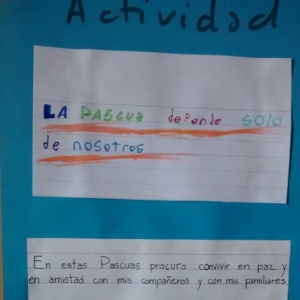 Actividad
LA PASCUA depende solo
de nosotros
En estas Pascuas procuro convivir en paz y
en amistad con mis compañeros y con mis familiares